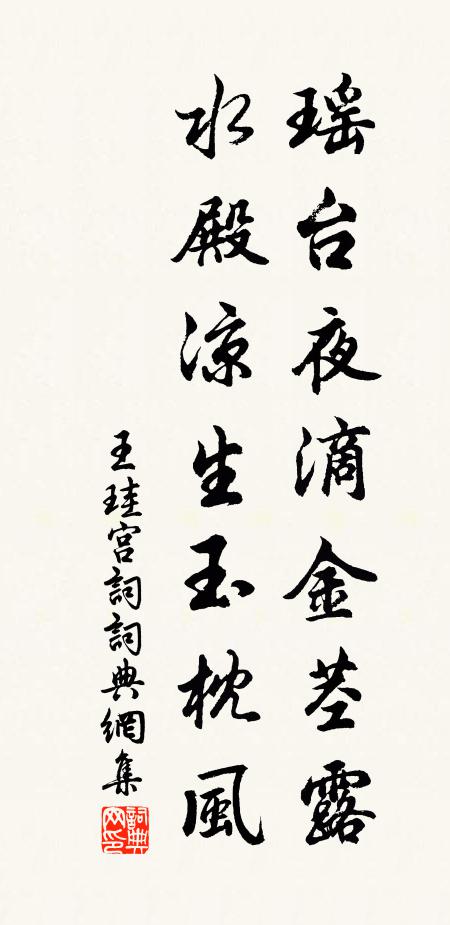 瑶台夜滴金茎露
水殿凉生玉枕風
王珪宫詞詞典網集
詞典網印